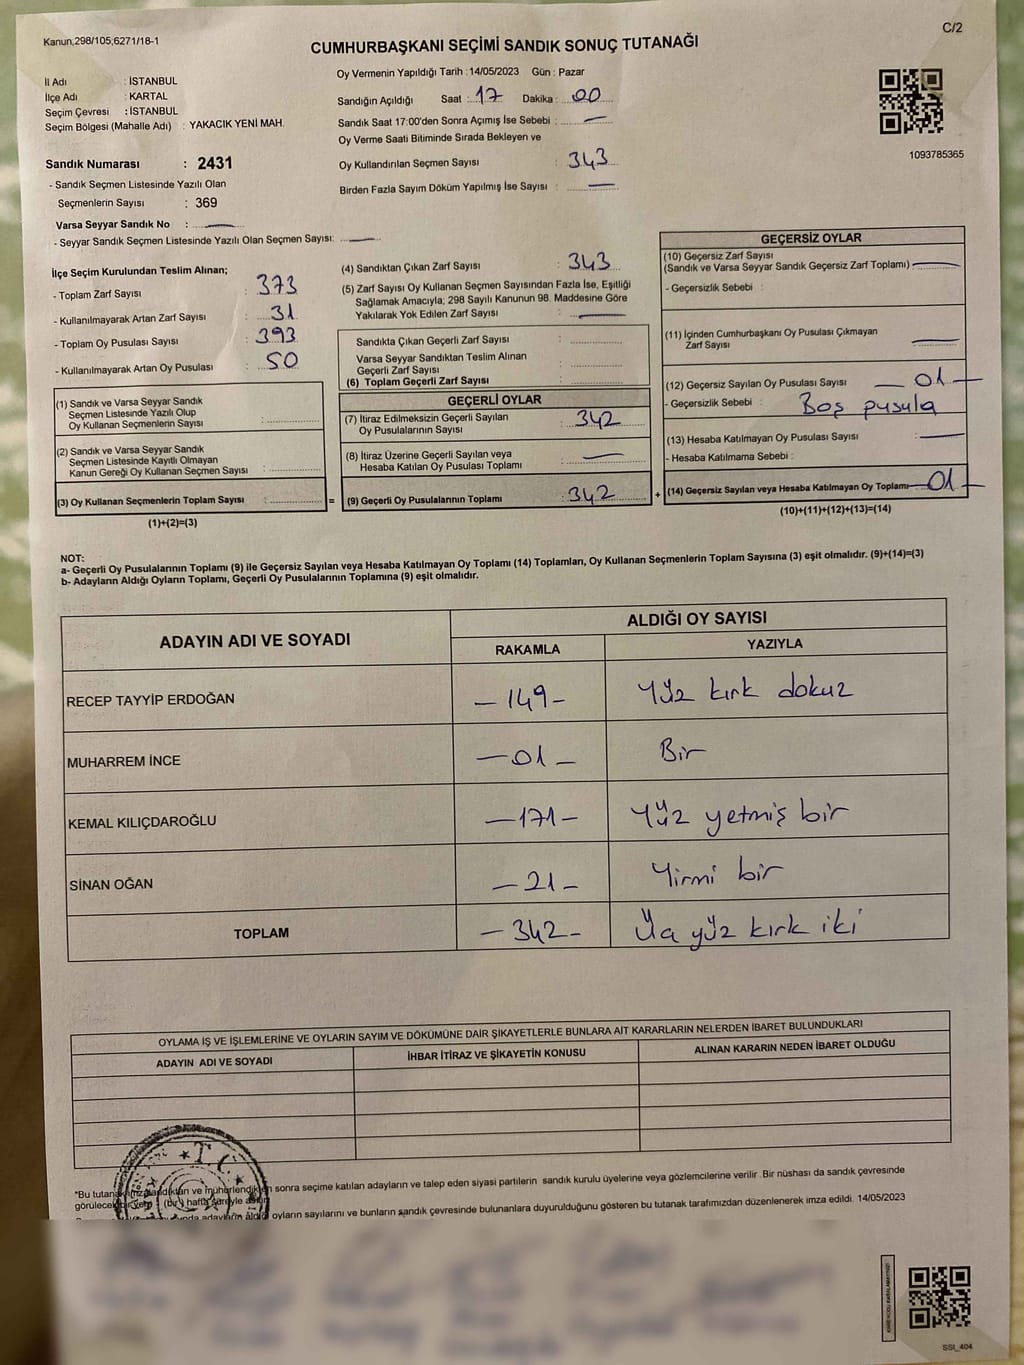 Kanun;298/105;6271/18-1
C/2
CUMHURBAŞKANI SEÇİMİ SANDIK SONUÇ TUTANAĞI
İl Adı : İSTANBUL
İlçe Adı : KARTAL
Seçim Çevresi : İSTANBUL
Seçim Bölgesi (Mahalle Adı) : YAKACIK YENİ MAH.
Sandık Numarası : 2431
- Sandık Seçmen Listesinde Yazılı Olan
Seçmenlerin Sayısı : 369
Varsa Seyyar Sandık No : —
- Seyyar Sandık Seçmen Listesinde Yazılı Olan Seçmen Sayısı: —
Oy Vermenin Yapıldığı Tarih : 14/05/2023 Gün : Pazar
Sandığın Açıldığı Saat : 17 Dakika : 00
Sandık Saat 17:00'den Sonra Açımış İse Sebebi : —
Oy Verme Saati Bitiminde Sırada Bekleyen ve
Oy Kullandırılan Seçmen Sayısı : 343
Birden Fazla Sayım Döküm Yapılmış İse Sayısı : —
1093785365
İlçe Seçim Kurulundan Teslim Alınan;
- Toplam Zarf Sayısı : 373
- Kullanılmayarak Artan Zarf Sayısı : 31
- Toplam Oy Pusulası Sayısı : 393
- Kullanılmayarak Artan Oy Pusulası : 50
(1) Sandık ve Varsa Seyyar Sandık
Seçmen Listesinde Yazılı Olup
Oy Kullanan Seçmenlerin Sayısı :
(2) Sandık ve Varsa Seyyar Sandık
Seçmen Listesinde Kayıtlı Olmayan
Kanun Gereği Oy Kullanan Seçmen Sayısı :
(3) Oy Kullanan Seçmenlerin Toplam Sayısı : =
(1)+(2)=(3)
(4) Sandıktan Çıkan Zarf Sayısı : 343
(5) Zarf Sayısı Oy Kullanan Seçmen Sayısından Fazla İse, Eşitliği
Sağlamak Amacıyla; 298 Sayılı Kanunun 98. Maddesine Göre
Yakılarak Yok Edilen Zarf Sayısı : —
Sandıkta Çıkan Geçerli Zarf Sayısı :
Varsa Seyyar Sandıktan Teslim Alınan
Geçerli Zarf Sayısı :
(6) Toplam Geçerli Zarf Sayısı :
GEÇERLİ OYLAR
(7) İtiraz Edilmeksizin Geçerli Sayılan
Oy Pusulalarının Sayısı : 342
(8) İtiraz Üzerine Geçerli Sayılan veya
Hesaba Katılan Oy Pusulası Toplamı : —
(9) Geçerli Oy Pusulalarının Toplamı : 342 +
GEÇERSİZ OYLAR
(10) Geçersiz Zarf Sayısı
(Sandık ve Varsa Seyyar Sandık Geçersiz Zarf Toplamı) : —
- Geçersizlik Sebebi :
(11) İçinden Cumhurbaşkanı Oy Pusulası Çıkmayan
Zarf Sayısı —
(12) Geçersiz Sayılan Oy Pusulası Sayısı — 01 —
- Geçersizlik Sebebi : Boş pusula
(13) Hesaba Katılmayan Oy Pusulası Sayısı : —
- Hesaba Katılmama Sebebi :
(14) Geçersiz Sayılan veya Hesaba Katılmayan Oy Toplamı — 01 —
(10)+(11)+(12)+(13)=(14)
NOT:
a- Geçerli Oy Pusulalarının Toplamı (9) ile Geçersiz Sayılan veya Hesaba Katılmayan Oy Toplamı (14) Toplamları, Oy Kullanan Seçmenlerin Toplam Sayısına (3) eşit olmalıdır. (9)+(14)=(3)
b- Adayların Aldığı Oyların Toplamı, Geçerli Oy Pusulalarının Toplamına (9) eşit olmalıdır.
ADAYIN ADI VE SOYADI
ALDIĞI OY SAYISI
RAKAMLA YAZIYLA
RECEP TAYYİP ERDOĞAN — 149 — Yüz kırk dokuz
MUHARREM İNCE — 01 — Bir
KEMAL KILIÇDAROĞLU — 171 — Yüz yetmiş bir
SİNAN OĞAN — 21 — Yirmi bir
TOPLAM — 342 — Üç yüz kırk iki
OYLAMA İŞ VE İŞLEMLERİNE VE OYLARIN SAYIM VE DÖKÜMÜNE DAİR ŞİKAYETLERLE BUNLARA AİT KARARLARIN NELERDEN İBARET BULUNDUKLARI
ADAYIN ADI VE SOYADI İHBAR İTİRAZ VE ŞİKAYETİN KONUSU ALINAN KARARIN NEDEN İBARET OLDUĞU
T.C
*Bu tutanak ve mühürlendikten sonra seçime katılan adayların ve talep eden siyasi partilerin sandık kurulu üyelerine veya gözlemcilerine verilir .Bir nüshası da sandık çevresinde
görülecek bir yere (bir) hafta süreyle
adayların aldığı oyların sayılarını ve bunların sandık çevresinde bulunanlara duyurulduğunu gösteren bu tutanak tarafımızdan düzenlenerek imza edildi. 14/05/2023
SSI_404